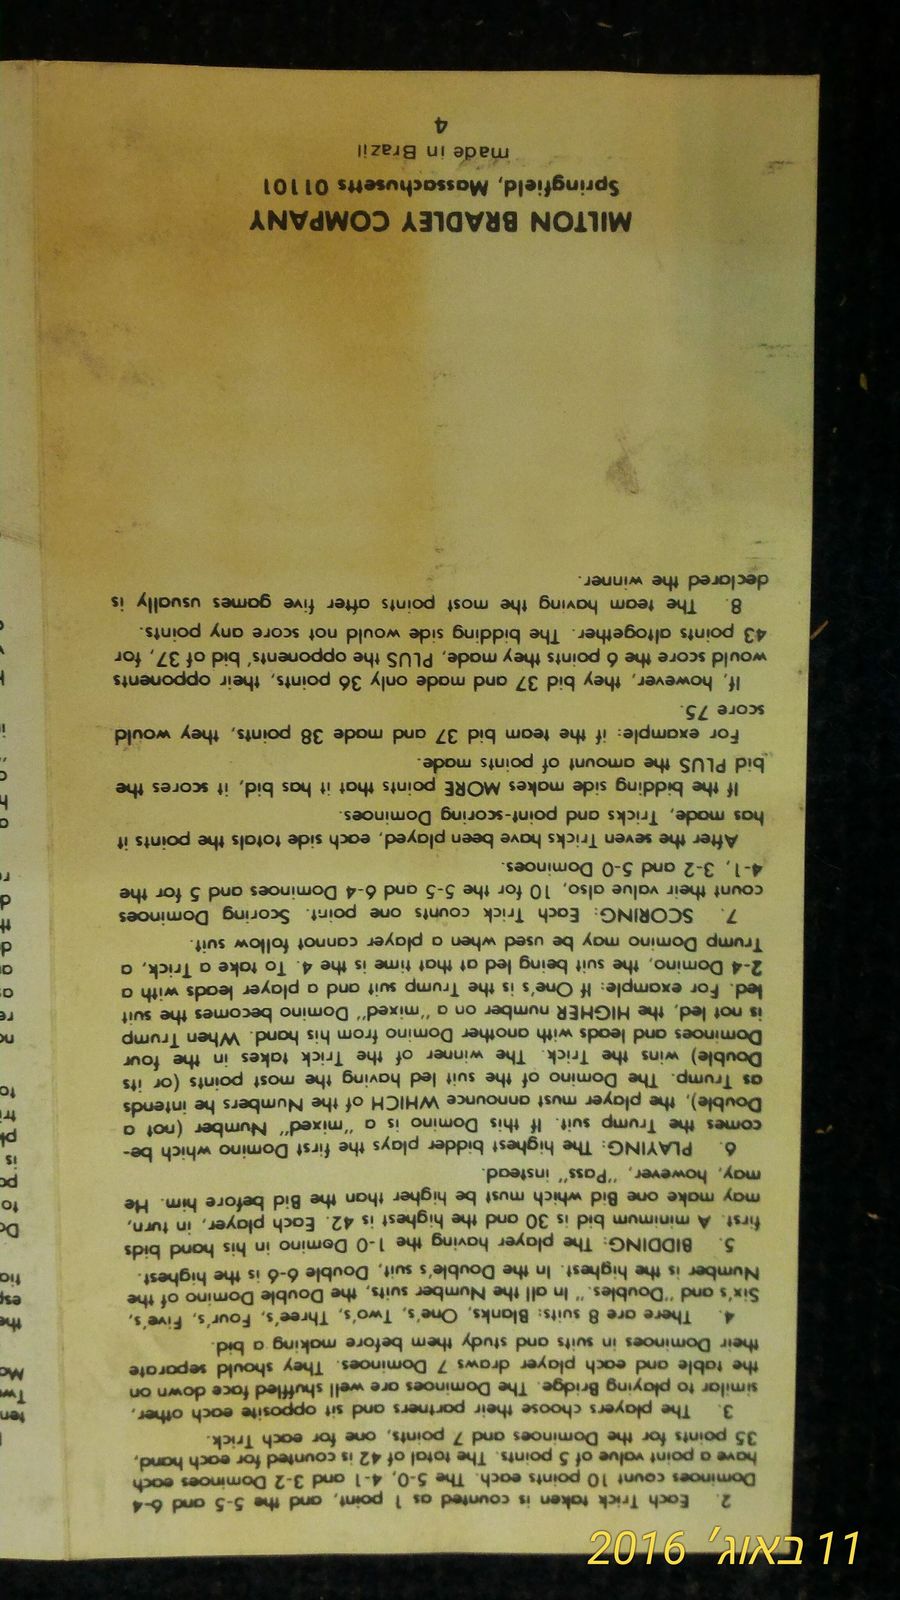 2. Each Trick taken is counted as 1 point, and the 5-5 and 6-4
Dominoes count 10 points each. The 5-0, 4-1 and 3-2 Dominoes each
have a point value of 5 points. The total of 42 is counted for each hand,
35 points for the Dominoes and 7 points, one for each Trick.
3. The players choose their partners and sit opposite each other,
similar to playing Bridge. The Dominoes are well shuffled face down on
the table and each player draws 7 Dominoes. They should separate
their Dominoes in suits and study them before making a bid.
4. There are 8 suits: Blanks, One's, Two's, Three's, Four's, Five's,
Six's and "Doubles." In all the Number suits, the Double Domino of the
Number is the highest. In the Double's suit, Double 6-6 is the highest.
5. BIDDING: The player having the 1-0 Domino in his hand bids
first. A minimum bid is 30 and the highest is 42. Each player, in turn,
may make one Bid which must be higher than the Bid before him. He
may, however, "Pass" instead.
6. PLAYING: The highest bidder plays the first Domino which be-
comes the Trump suit. If this Domino is a "mixed" Number (not a
Double), the player must announce WHICH of the Numbers he intends
as Trump. The Domino of the suit led having the most points (or its
Double) wins the Trick. The winner of the Trick takes in the four
Dominoes and leads with another Domino from his hand. When Trump
is not led, the HIGHER number on a "mixed" Domino becomes the suit
led. For example: If One's is the Trump suit and a player leads with a
2-4 Domino, the suit being led at that time is the 4. To take a Trick, a
Trump Domino may be used when a player cannot follow suit.
7. SCORING: Each Trick counts one point. Scoring Dominoes
count their value also, 10 for the 5-5 and 6-4 Dominoes and 5 for the
4-1, 3-2 and 5-0 Dominoes.
After the seven Tricks have been played, each side totals the points it
has made, Tricks and point-scoring Dominoes.
If the bidding side makes MORE points that it has bid, it scores the
bid PLUS the amount of points made.
For example: if the team bid 37 and made 38 points, they would
score 75.
If, however, they bid 37 and made only 36 points, their opponents
would score the 6 points they made, PLUS the opponents' bid of 37, for
43 points altogether. The bidding side would not score any points.
8. The team having the most points after five games usually is
declared the winner.
MILTON BRADLEY COMPANY
Springfield, Massachusetts 01101
made in Brazil
4
11 באוג׳ 2016